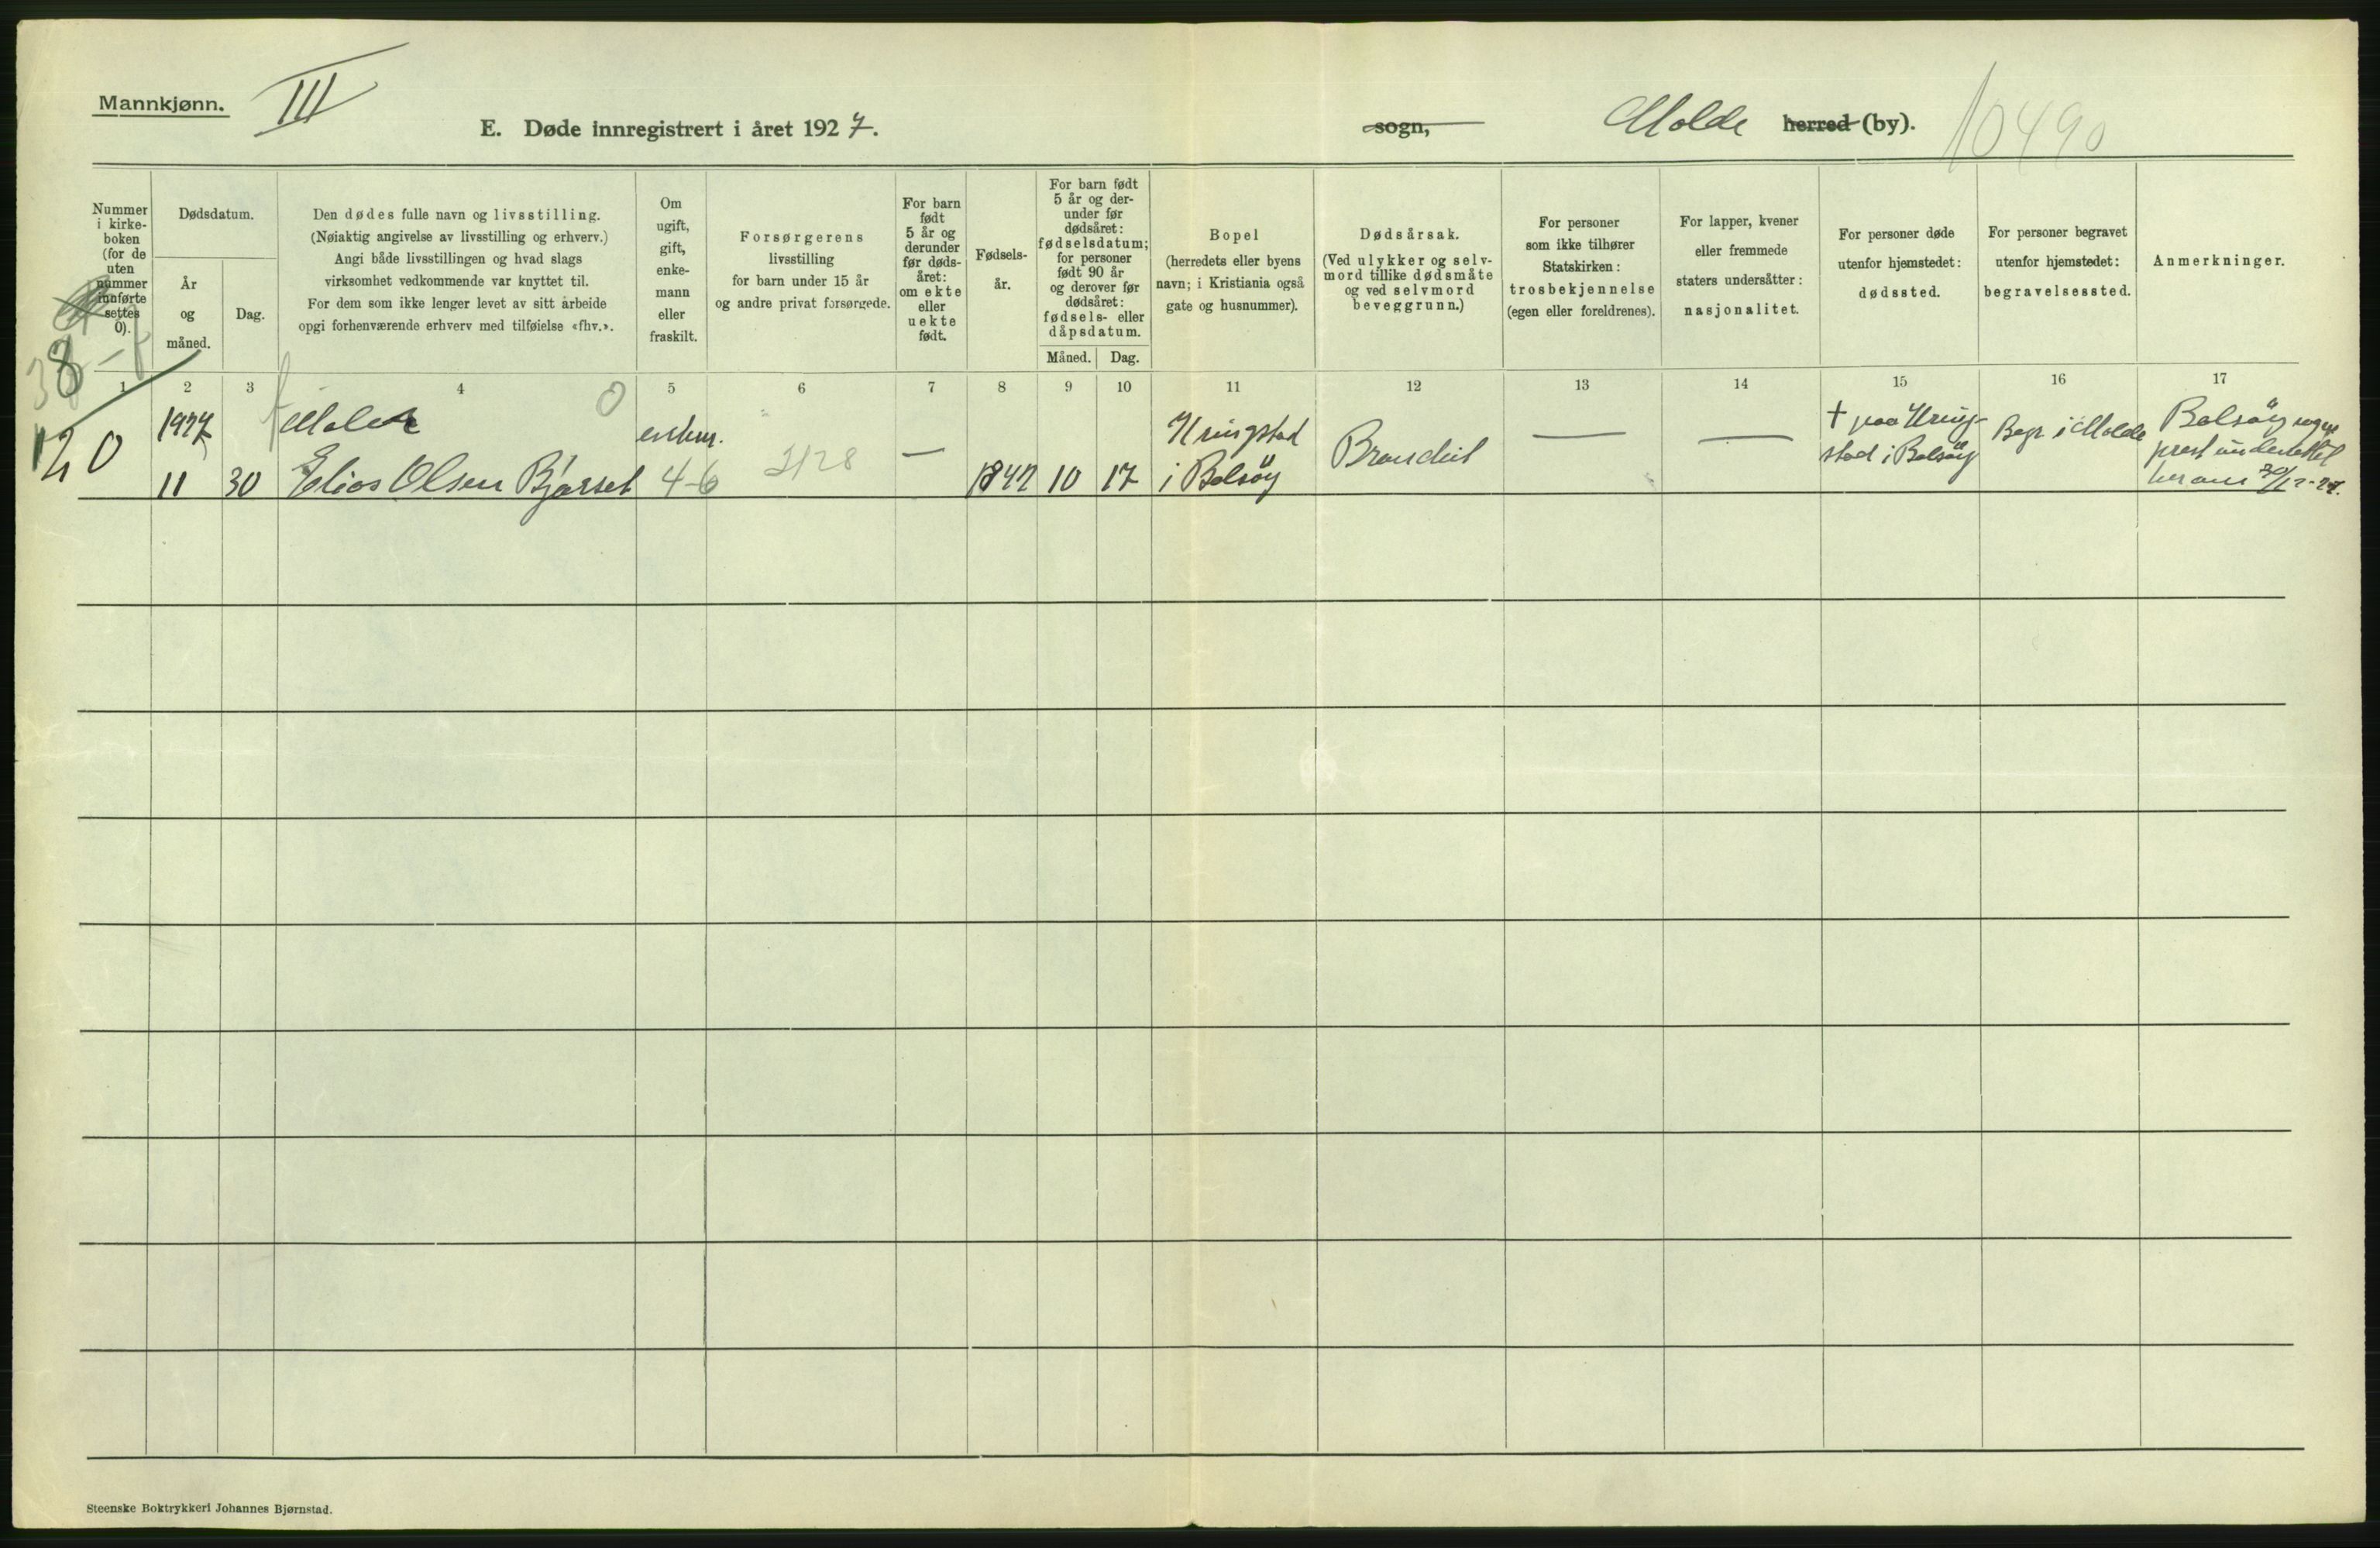 Mannkjønn.
III
E. Døde innregistrert i året 1927.
sogn,
Molde herred (by).
10490
Nummer i kirke- boken (for de uten nummer innførte settes 0).
Dødsdatum.
År og måned.
Dag.
Den dødes fulle navn og livsstilling.
(Nøiaktig angivelse av livsstilling og erhverv.)
Angi både livsstillingen og hvad slags
virksomhet vedkommende var knyttet til.
For dem som ikke lenger levet av sitt arbeide
opgi forhenværende erhverv med tilføielse «fhv.».
Om ugift, gift, enke- mann eller fraskilt.
Forsørgerens
livsstilling
for barn under 15 år
og andre privat forsørgede.
For barn født 5 år og derunder før døds- året: om ekte eller uekte født.
Fødsels- år.
For barn født 5 år og der- under før dødsåret: fødselsdatum; for personer født 90 år og derover før dødsåret: fødsels- eller dåpsdatum.
Måned.
Dag.
Bopel
(herredets eller byens
navn; i Kristiania også
gate og husnummer).
Dødsårsak.
(Ved ulykker og selv-
mord tillike dødsmåte
og ved selvmord
beveggrunn.)
For personer
som ikke tilhører
Statskirken:
trosbekjennelse
(egen eller foreldrenes).
For lapper, kvener
eller fremmede
staters undersåtter:
nasjonalitet.
For personer døde
utenfor hjemstedet:
dødssted.
For personer begravet
utenfor hjemstedet:
begravelsessted.
Anmerkninger.
1 2 3 4 5 6 7 8 9 10 11 12 13 14 15 16 17
8
0
1927
11
30
Maler
0
Elias Olsen Bjørset
enkm.
4-6
—
1842
10
17
Kringstad
i Bolsöy
Bronchit
—
—
† paa Kring-
stad i Bolsöy
Begr. i Molde
Bolsöy sogne
prest underrettet
herom 30/12-27.
Steenske Boktrykkeri Johannes Bjørnstad.